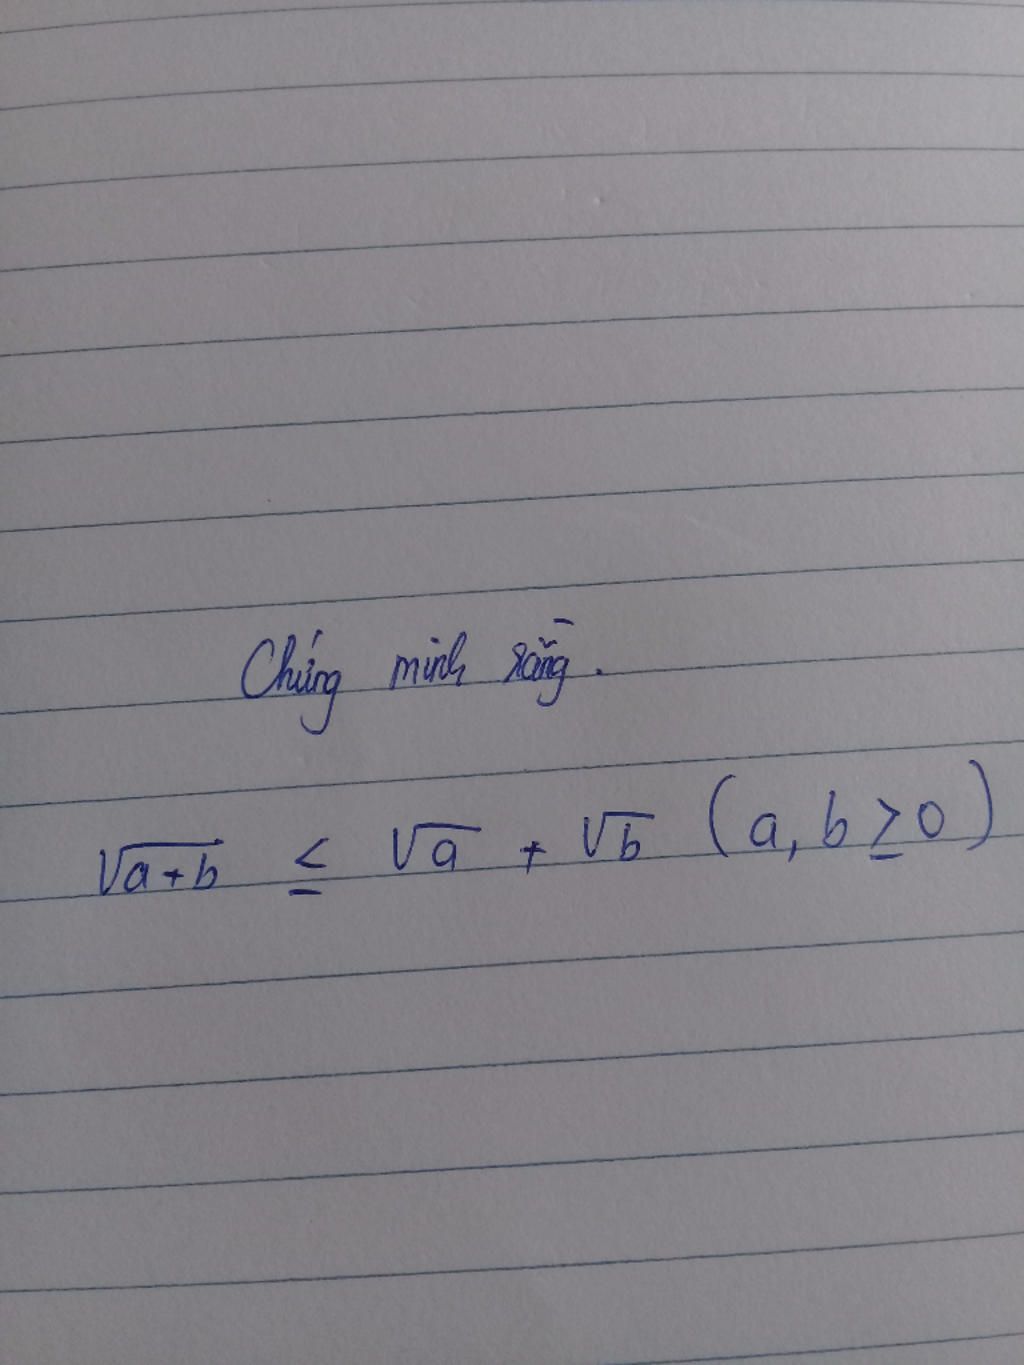 Chứng minh rằng.
√(a+b) ≤ √a + √b (a, b ≥ 0)